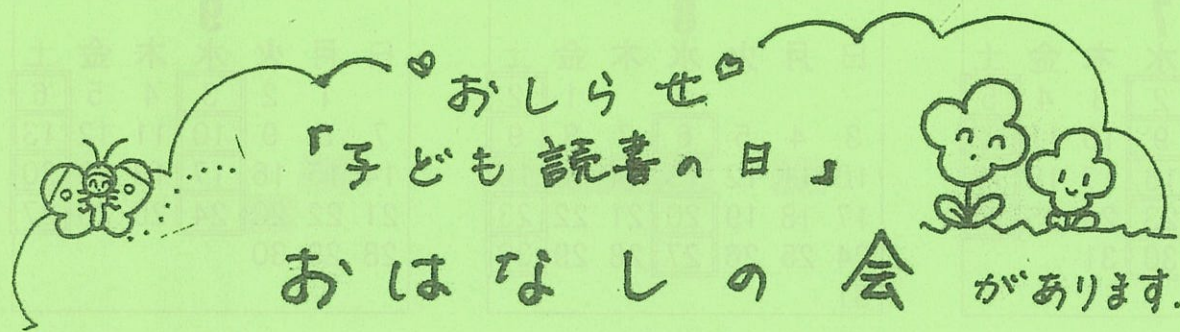 おしらせ
『子ども読書の日』
おはなしの会 があります.